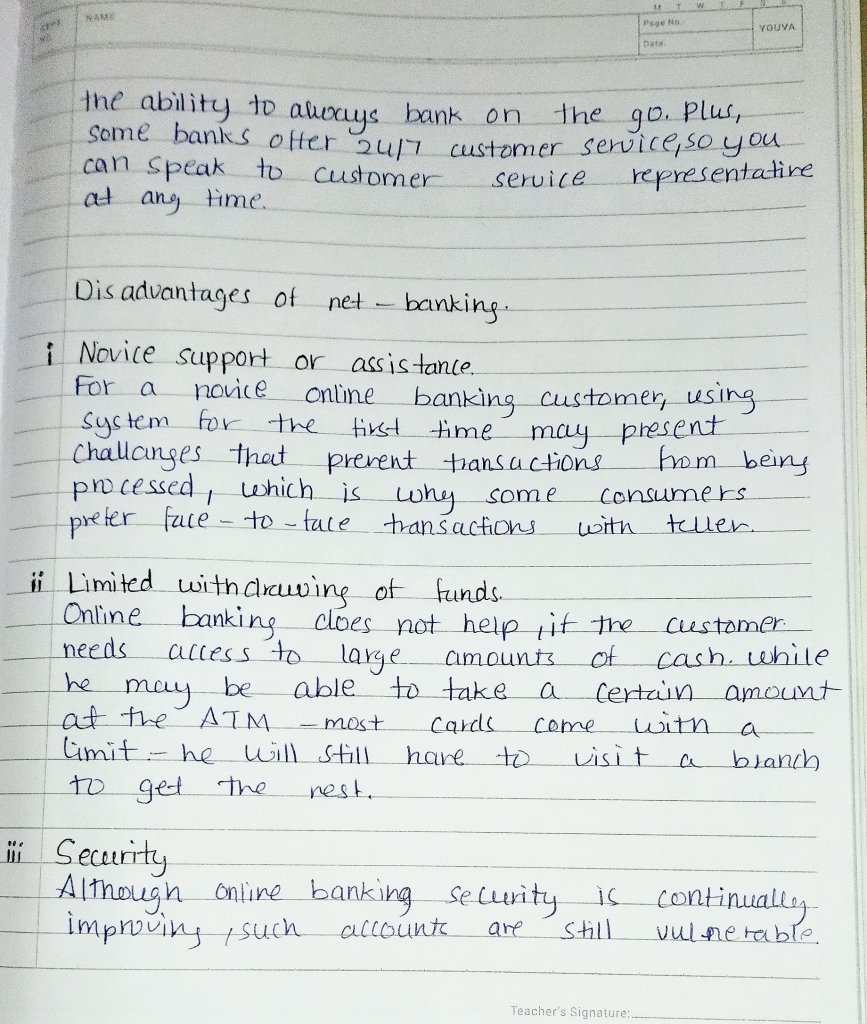 NAME
M T W T F S S
Page No.:
YOUVA
Date:
the ability to always bank on the go. Plus,
some banks offer 24/7 customer service, so you
can speak to customer service representative
at any time.
Disadvantages of net – banking.
i Novice support or assistance.
For a novice online banking customer, using
system for the first time may present
challanges that prevent transactions from being
processed, which is why some consumers
prefer face – to – face transactions with teller.
ii Limited withdrawing of funds.
Online banking does not help, if the customer
needs access to large amounts of cash. While
he may be able to take a certain amount
at the ATM – most cards come with a
limit – he will still have to visit a branch
to get the rest.
iii Security
Although online banking security is continually
improving, such accounts are still vulnerable
Teacher's Signature: